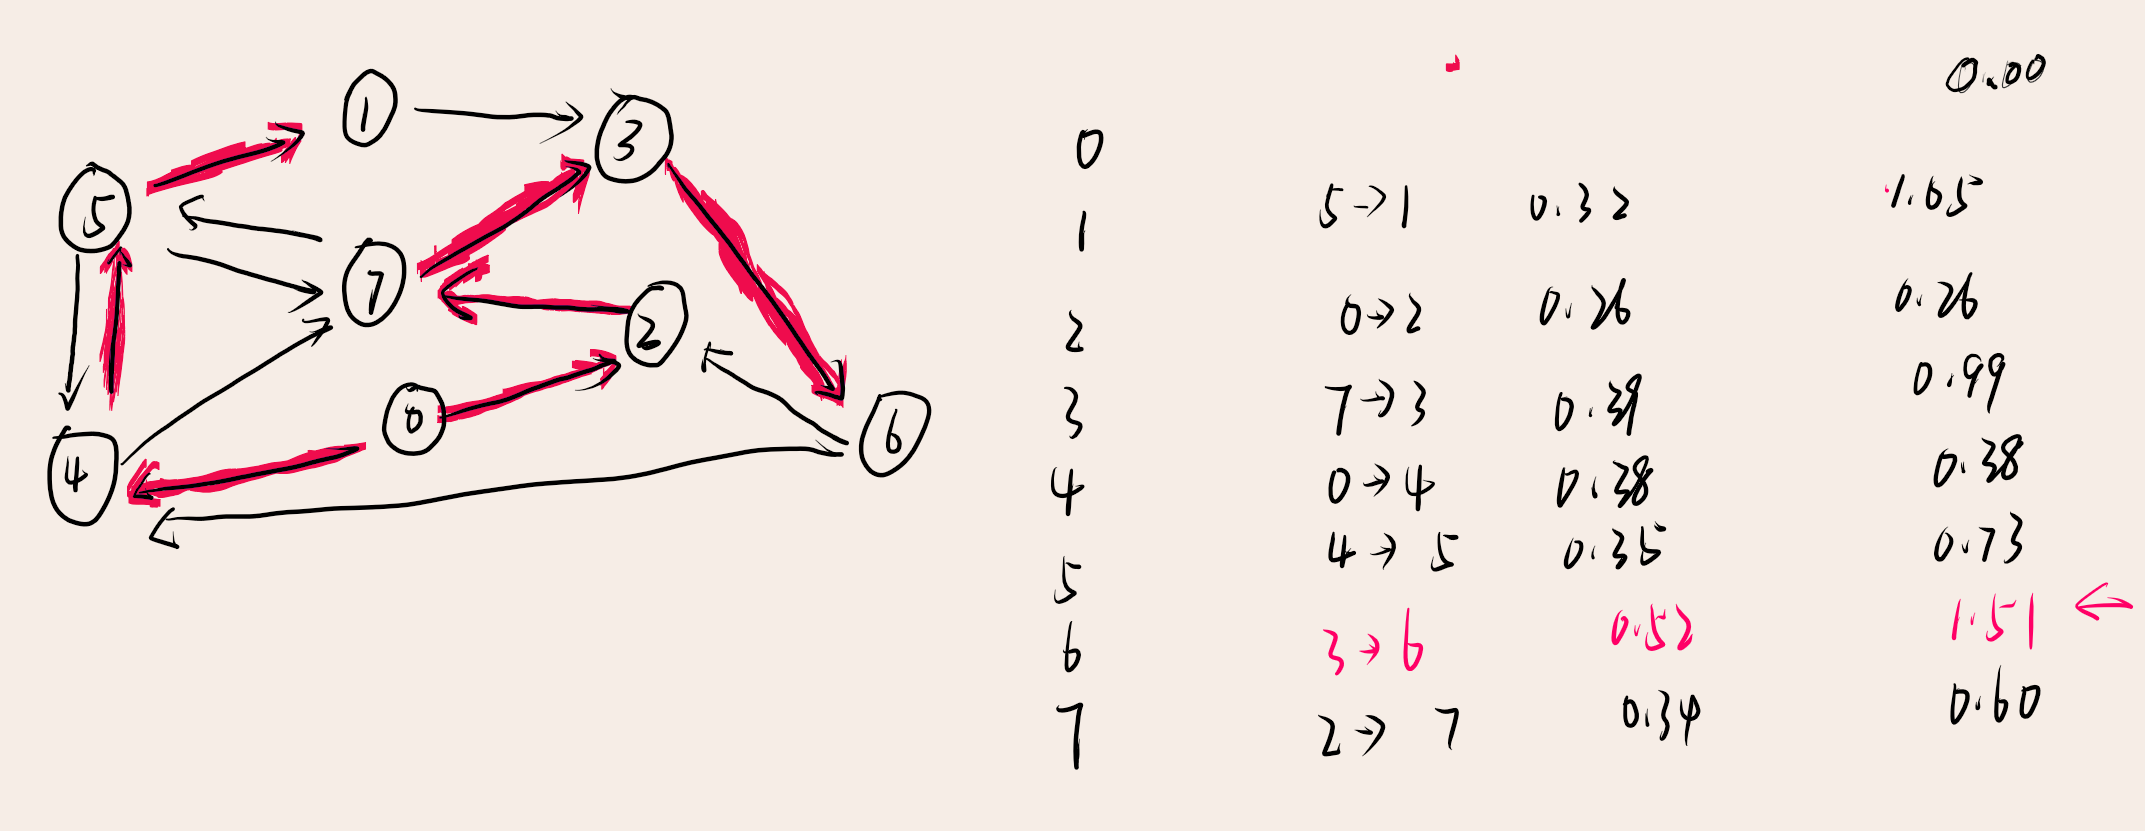 1
3
5
7
2
0
6
4
0.00
0
1 5→1 0.32 1.05
2 0→2 0.26 0.26
3 7→3 0.39 0.99
4 0→4 0.38 0.38
5 4→5 0.35 0.73
6 3→6 0.52 1.51 ←
7 2→7 0.34 0.60